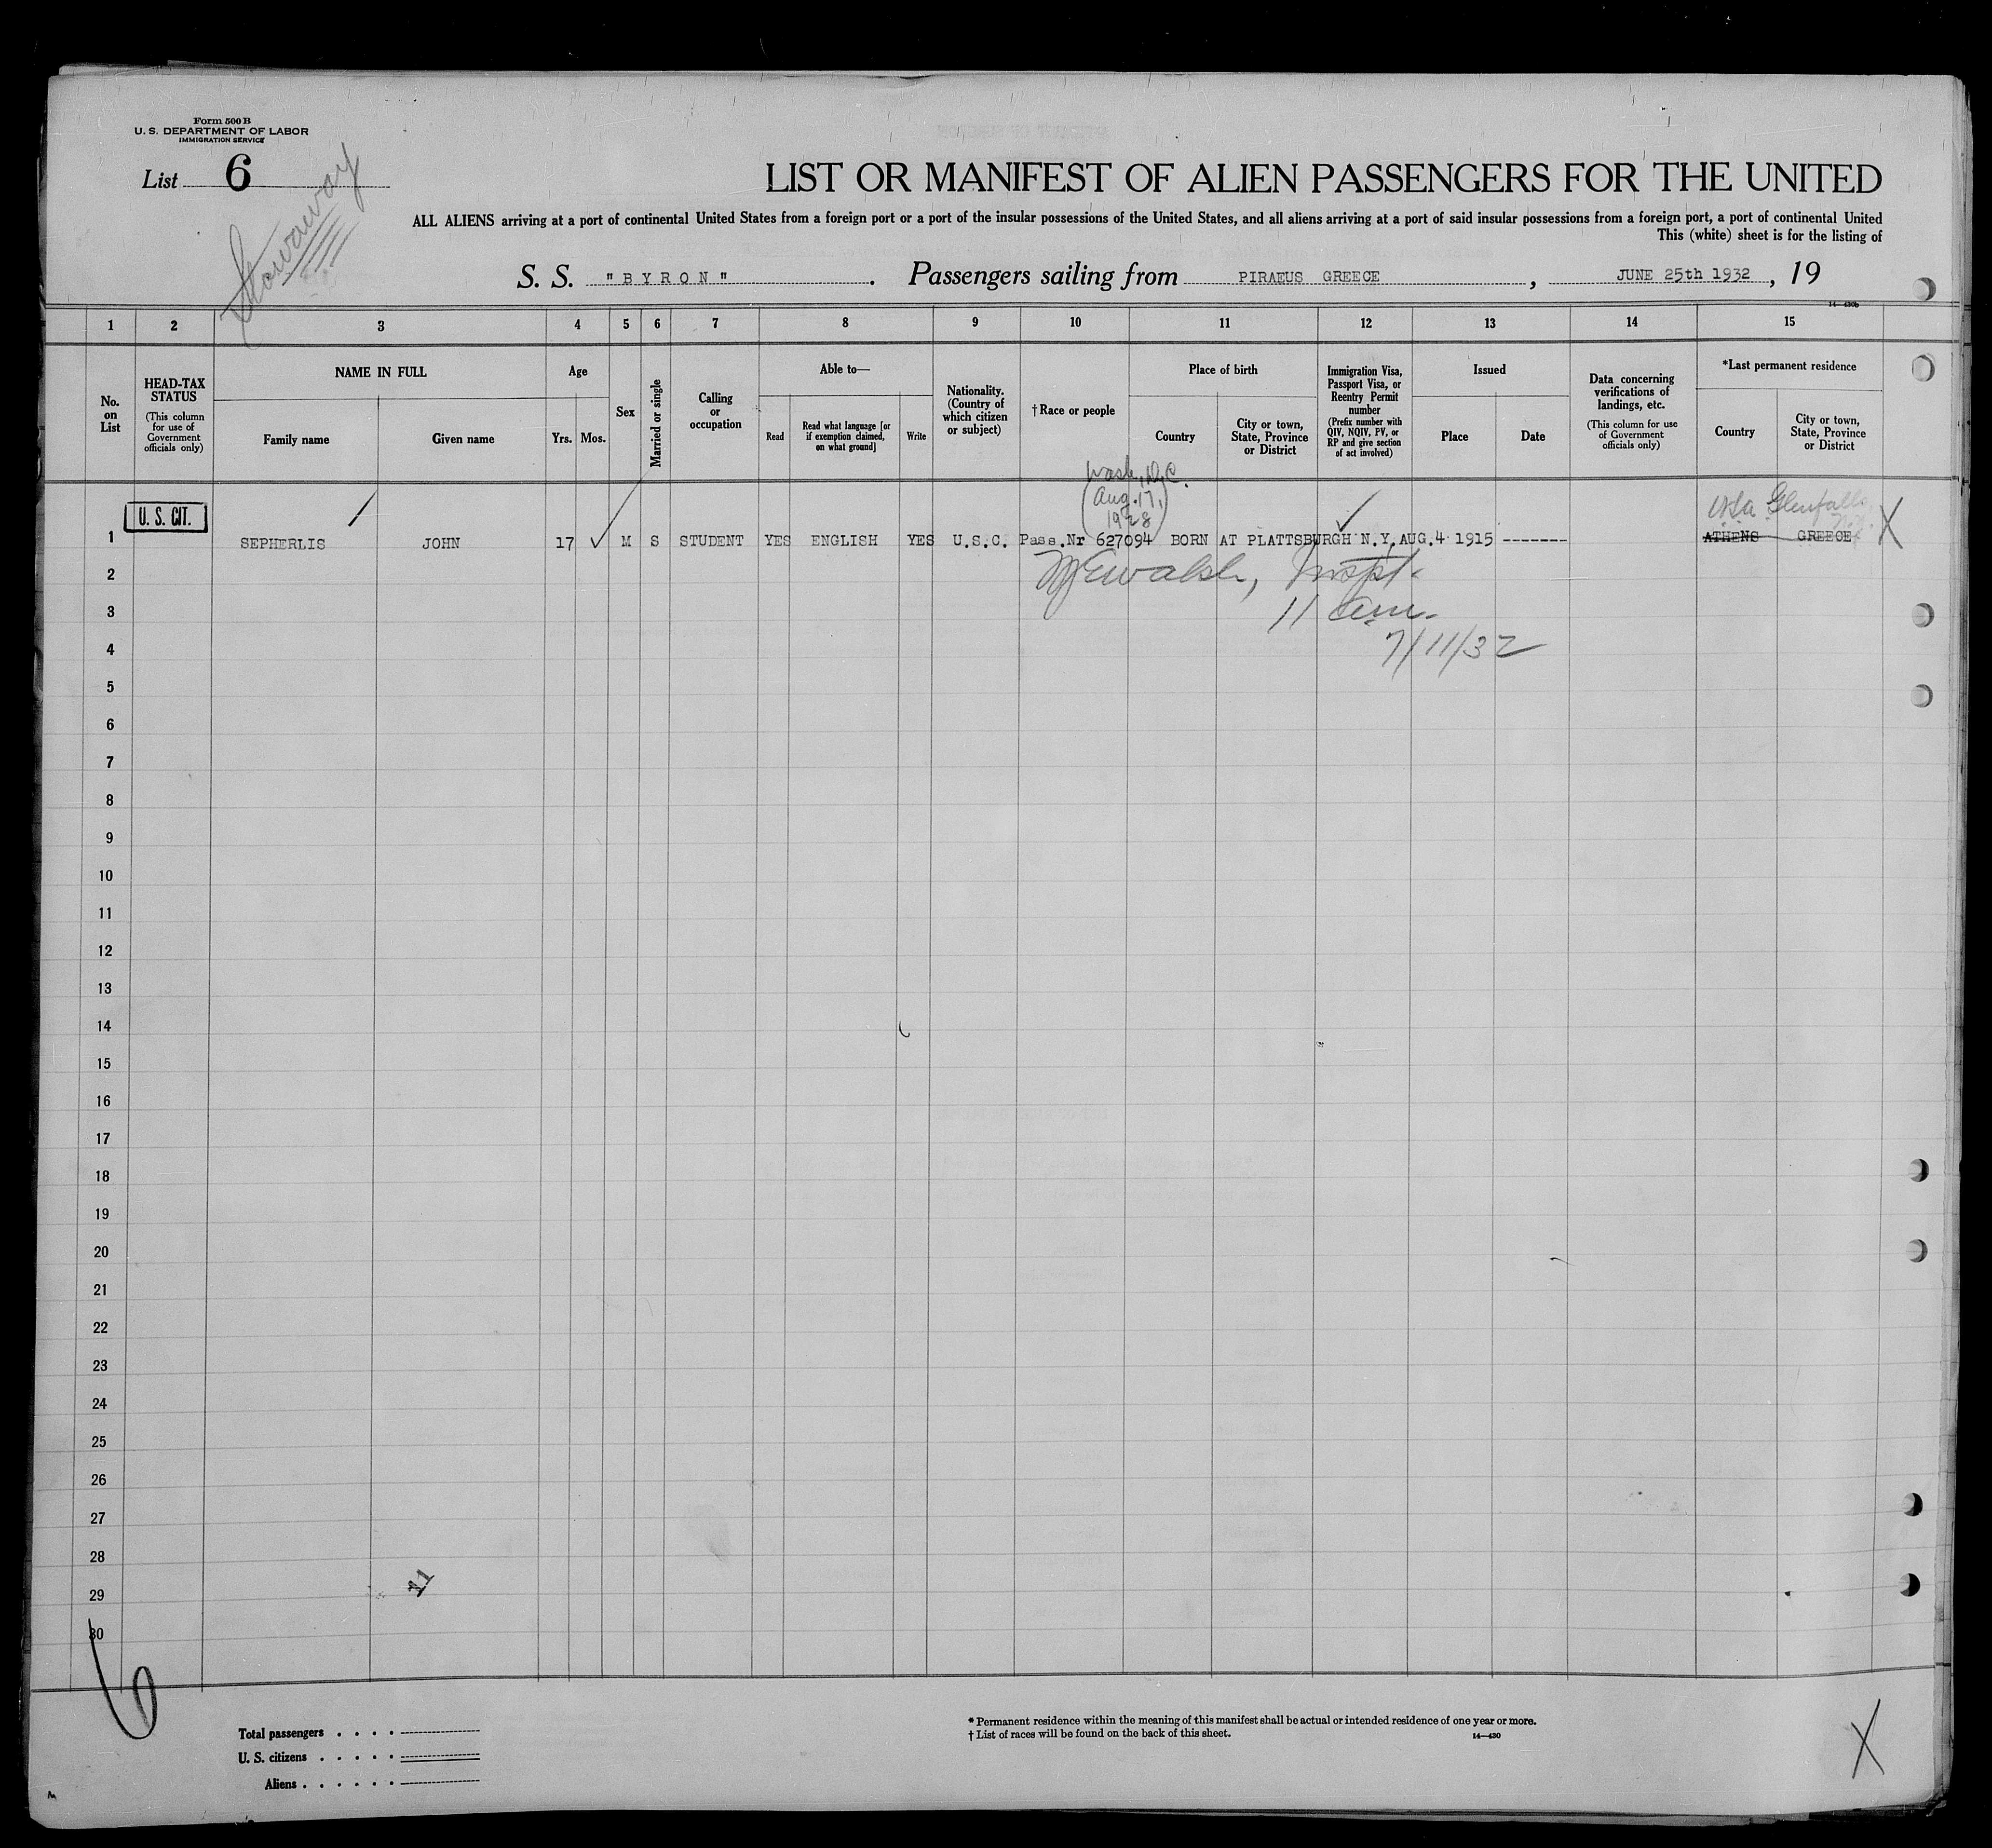 Form 500 B
U. S. DEPARTMENT OF LABOR
IMMIGRATION SERVICE
List 6
Stowaway
LIST OR MANIFEST OF ALIEN PASSENGERS FOR THE UNITED
ALL ALIENS arriving at a port of continental United States from a foreign port or a port of the insular possessions of the United States, and all aliens arriving at a port of said insular possessions from a foreign port, a port of continental United
This (white) sheet is for the listing of
S. S. "BYRON". Passengers sailing from PIRAEUS GREECE, JUNE 25th 1932, 19
14—430b
1 2 3 4 5 6 7 8 9 10 11 12 13 14 15
No. on List
HEAD-TAX STATUS
(This column for use of Government officials only)
NAME IN FULL
Family name Given name
Age
Yrs. Mos.
Sex
Married or single
Calling or occupation
Able to—
Read
Read what language [or if exemption claimed, on what ground]
Write
Nationality. (Country of which citizen or subject)
† Race or people
Place of birth
Country
City or town, State, Province or District
Immigration Visa, Passport Visa, or Reentry Permit number
(Prefix number with QIV, NQIV, PV, or RP and give section of act involved)
Issued
Place Date
Data concerning verifications of landings, etc.
(This column for use of Government officials only)
*Last permanent residence
Country
City or town, State, Province or District
Wash, D.C.
(Aug. 17, 1928)
USA Glenfalls N.Y.
U. S. CIT.
1 SEPHERLIS JOHN 17 M S STUDENT YES ENGLISH YES U.S.C. Pass.Nr 627094 BORN AT PLATTSBURGH N.Y. AUG.4 1915 ------- ATHENS GREECE X
2
Walsh, Inspt.
3
11 am.
4
7/11/32
5
6
7
8
9
10
11
12
13
14
15
16
17
18
19
20
21
22
23
24
25
26
27
28
29
11
30
6
Total passengers . . . .
U. S. citizens . . . . .
Aliens . . . . . .
* Permanent residence within the meaning of this manifest shall be actual or intended residence of one year or more.
† List of races will be found on the back of this sheet.
14—430
X